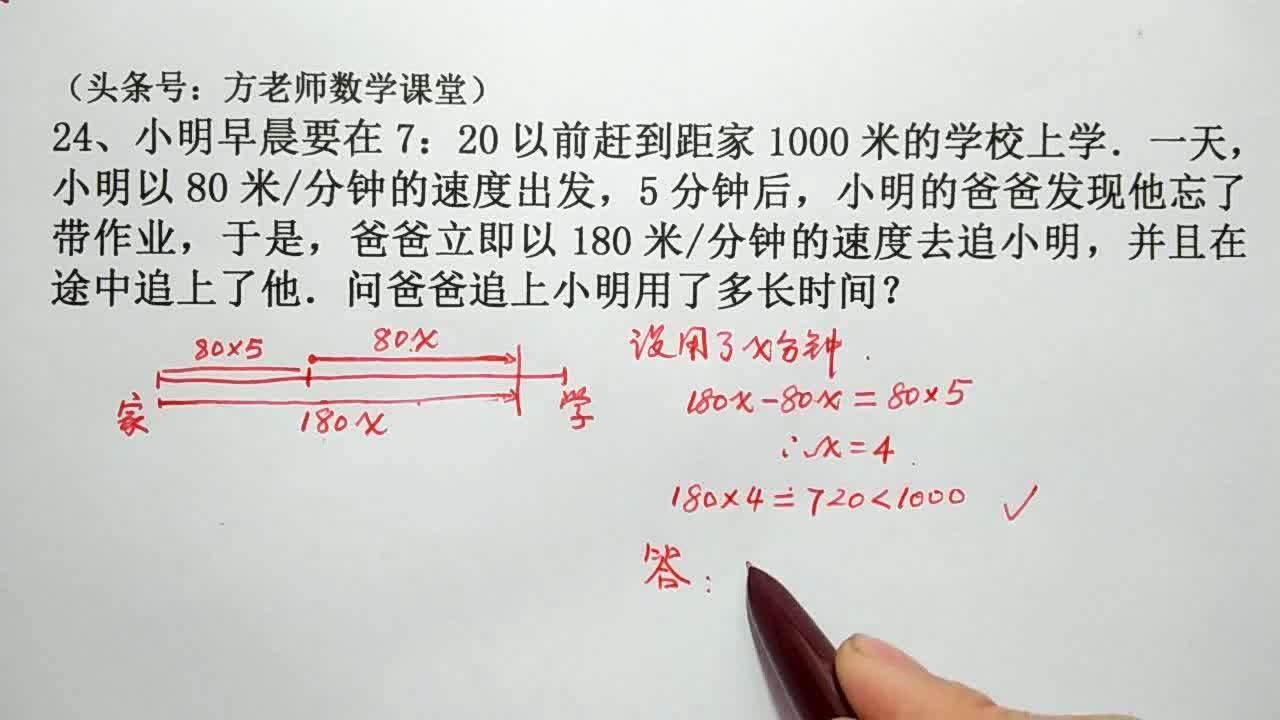 （头条号：方老师数学课堂）
24、小明早晨要在 7：20 以前赶到距家 1000 米的学校上学．一天，
小明以 80 米/分钟的速度出发，5 分钟后，小明的爸爸发现他忘了
带作业，于是，爸爸立即以 180 米/分钟的速度去追小明，并且在
途中追上了他．问爸爸追上小明用了多长时间？
80×5
80x
家
180x
学
设用了x分钟.
180x-80x=80×5
∴x=4
180×4=720<1000 ✓
答：